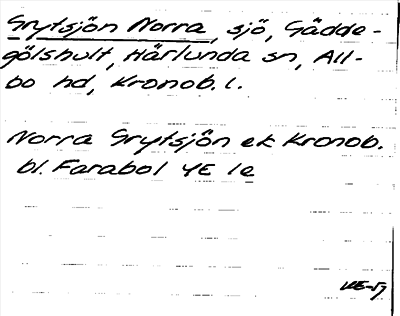 Grytsjön Norra, sjö, Gädde-
gölshult, Härlunda sn, All-
bo hd, Kronob. l.
Norra Grytsjön ek Kronob.
bl. Farabol 4E 1e